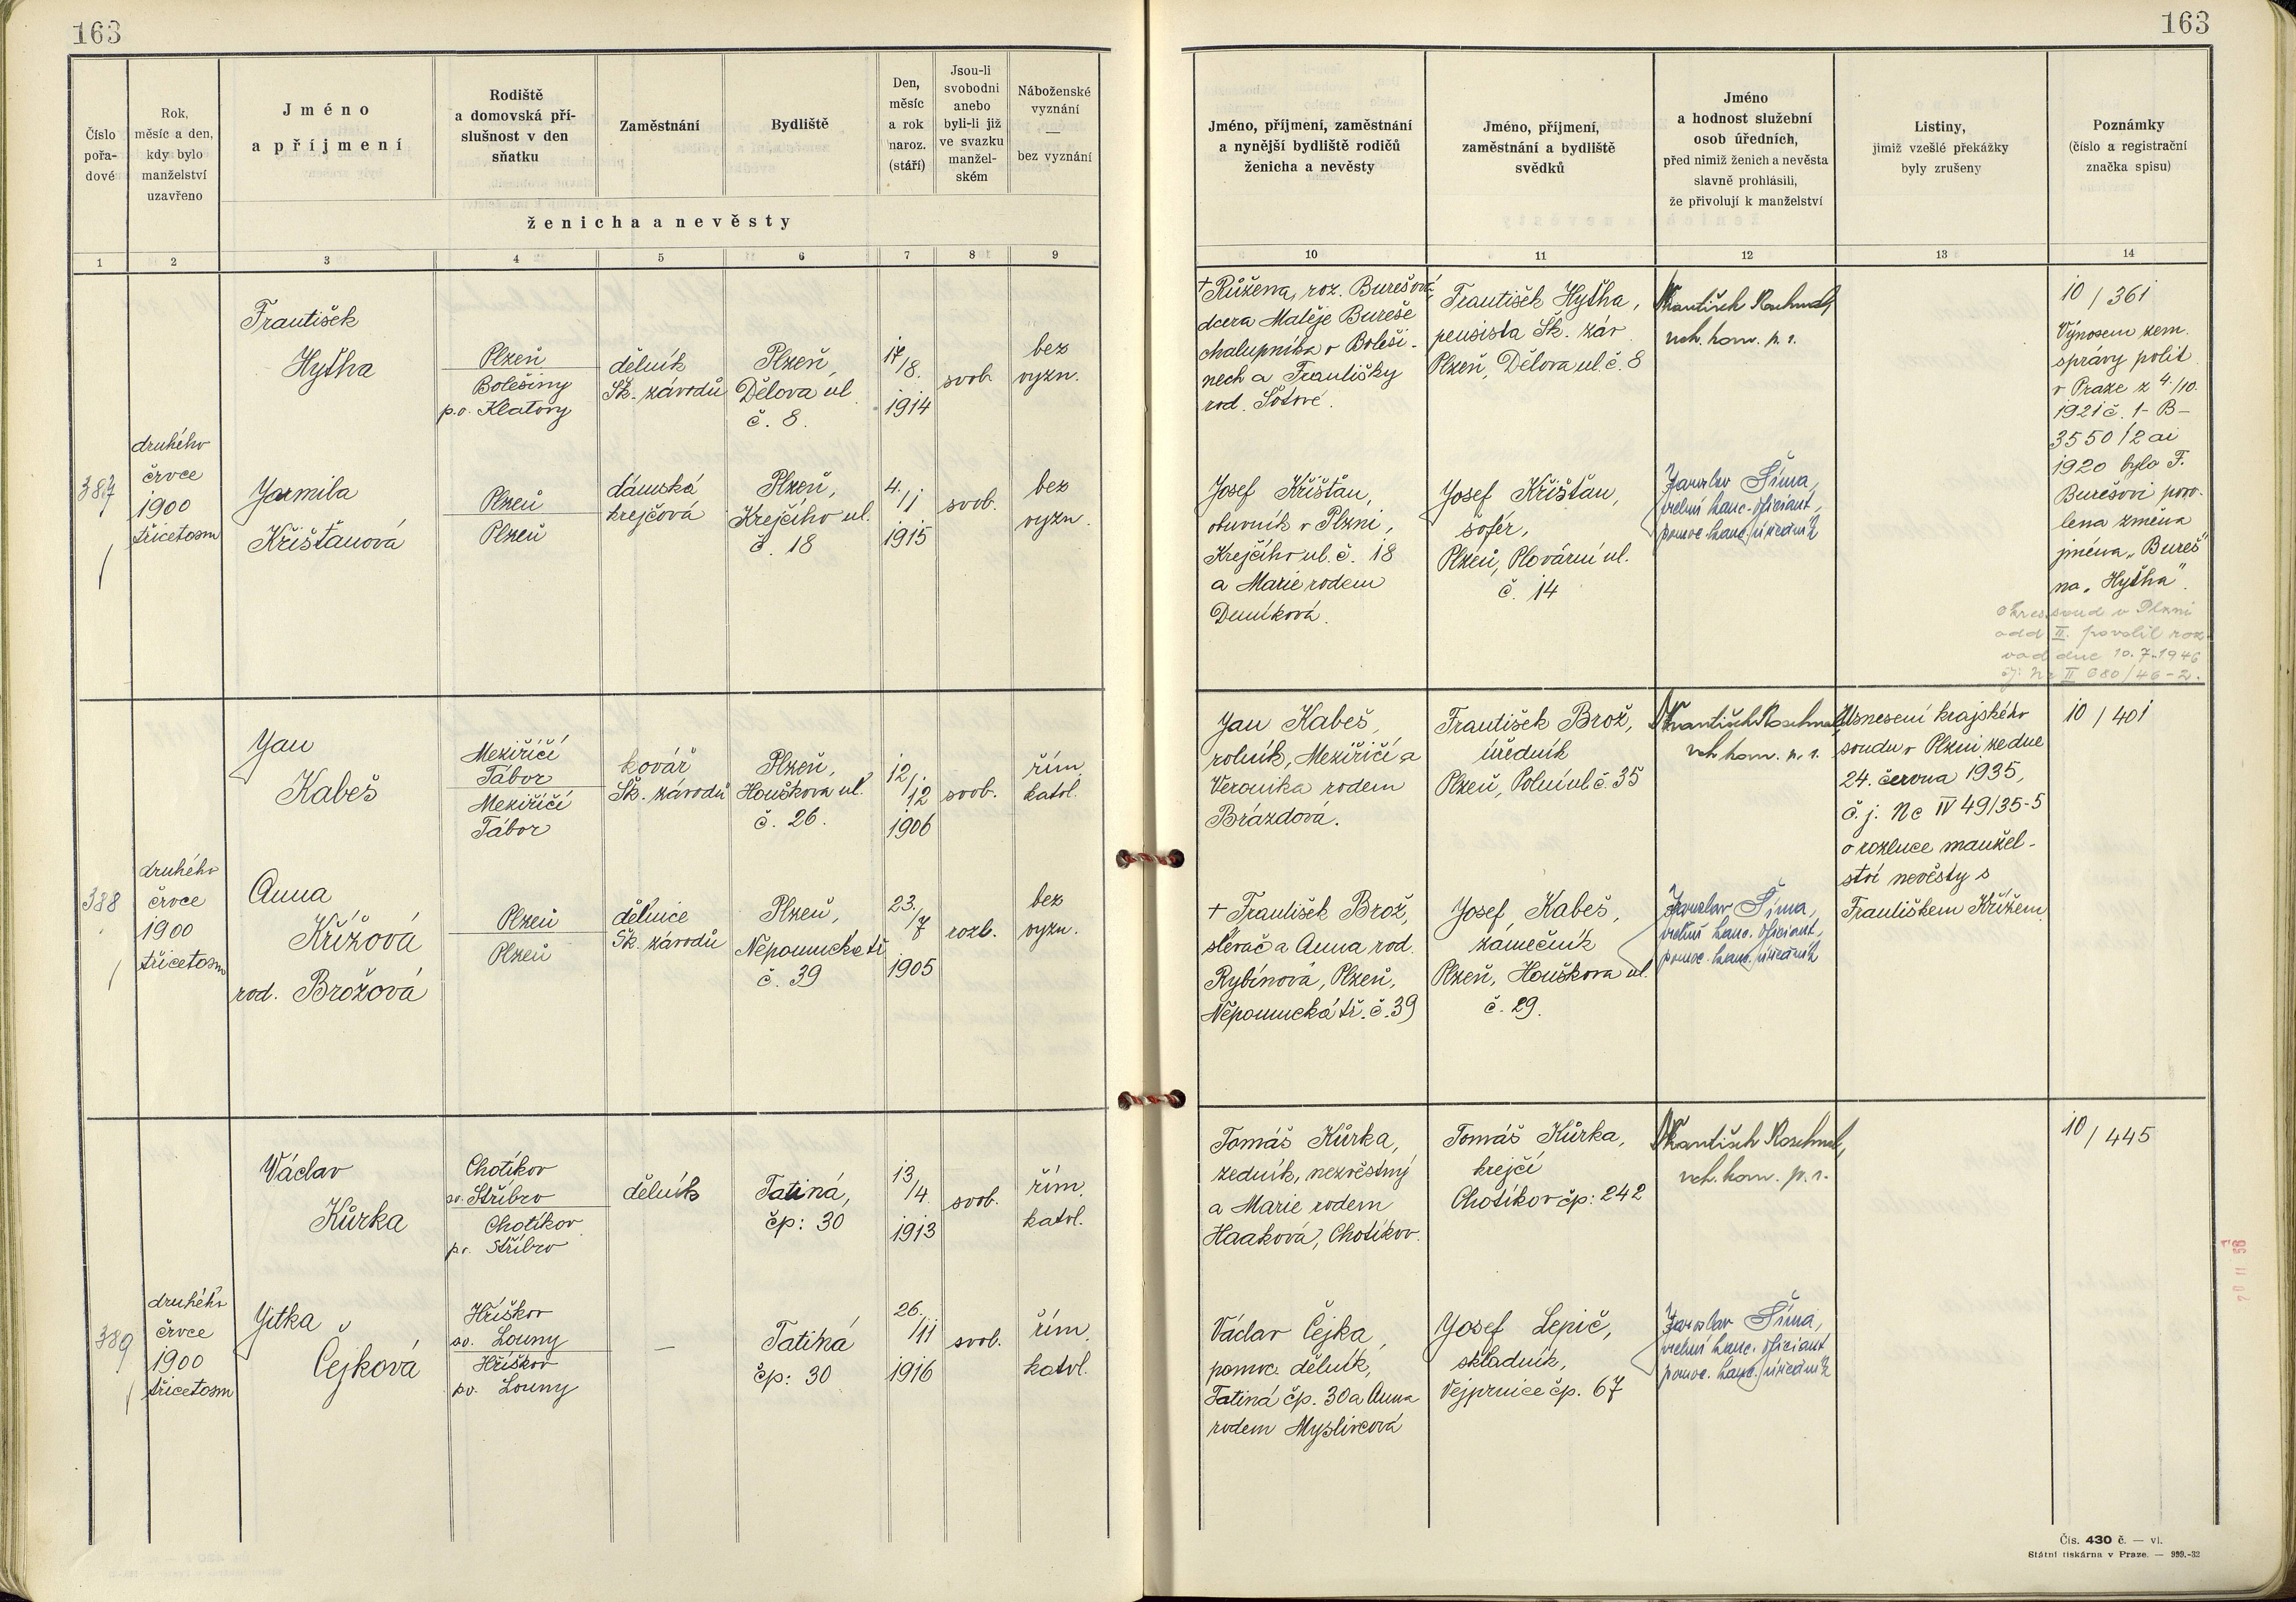 163
163
Číslo
pořa-
dové
Rok,
měsíc a den,
kdy bylo
manželství
uzavřeno
Jméno
a příjmení
Rodiště
a domovská pří-
slušnost v den
sňatku
Zaměstnání
Bydliště
Den,
měsíc
a rok
naroz.
(stáří)
Jsou-li
svobodni
anebo
byli-li již
ve svazku
manžel-
ském
Náboženské
vyznání
—
bez vyznání
ženicha a nevěsty
Jméno, příjmení, zaměstnání
a nynější bydliště rodičů
ženicha a nevěsty
Jméno, příjmení,
zaměstnání a bydliště
svědků
Jméno
a hodnost služební
osob úředních,
před nimiž ženich a nevěsta
slavně prohlásili,
že přivolují k manželství
Listiny,
jimiž vzešlé překážky
byly zrušeny
Poznámky
(číslo a registrační
značka spisu)
1 2 3 4 5 6 7 8 9
10 11 12 13 14
387
druhého
črvce
1900
třicetosm
František
Hyťha
Plzeň
Bolešiny
p.o. Klatovy
dělník
Šk. závodů
Plzeň,
Dělova ul.
č. 8.
17/8.
1914
svob.
bez
vyzn.
Jarmila
Křišťanová
Plzeň
Plzeň
dámská
krejčová
Plzeň,
Krejčího ul.
č. 18
4./1
1915
svob.
bez
vyzn.
† Růžena, roz. Burešová,
dcera Matěje Bureše
chalupníka v Boleši-
nech a Františky
rod. Šotové.
František Hyťha,
pensista Šk. záv.
Plzeň, Dělova ul. č. 8
František
vrch. kom. p. s.
Josef Křišťan,
obuvník v Plzni,
Krejčího ul. č. 18
a Marie rodem
Deníková.
Josef Křišťan,
šofér,
Plzeň, Plovární ul.
č. 14
Jaroslav Šíma,
vrchní kanc. oficiant,
pomoc. kanc. úředník
10/361
Výnosem zem.
správy polit.
v Praze z 4./10.
1921 č. 1-B-
3550/2 ai
1920 byla F.
Burešovi povo-
lena změna
jména „Bureš"
na „Hyťha".
Okres. soud v Plzni
odd II. povolil roz-
vod dne 10.7.1946
čj. Nc II 680/46-2.
388
druhého
črvce
1900
třicetosm
Jan
Kabeš
Meziříčí
Tábor
Meziříčí
Tábor
kovář
Šk. závodů
Plzeň,
Houškova ul.
č. 26.
12./12
1906
svob.
řím.
katol.
Anna
Křížová
rod. Brožová
Plzeň
Plzeň
dělnice
Šk. závodů
Plzeň,
Nepomucká tř.
č. 39
23./7
1905
rozb.
bez
vyzn.
Jan Kabeš,
rolník, Meziříčí a
Veronika rodem
Brázdová.
František Brož,
úředník
Plzeň, Polní ul. č. 35
František
vrch. kom. p. s.
Usnesení krajského
soudu v Plzni ze dne
24. června 1935,
č. j. Nc IV 49/35-5
o rozluce manžel-
ství nevěsty s
Františkem Křížem
10/401
† František Brož,
slévač a Anna rod.
Rybínova, Plzeň,
Nepomucká tř. č. 39
Josef Kabeš,
zámečník
Plzeň, Houškova ul.
č. 29.
Jaroslav Šíma,
vrchní kanc. oficiant,
pomoc. kanc. úředník
389
druhého
črvce
1900
třicetosm
Václav
Kůrka
Chotíkov
po. Stříbro
Chotíkov
po. Stříbro
dělník
Tatiná,
čp: 30
13/4.
1913
svob.
řím.
katol.
Jitka
Čejková
Hříškov
po. Louny
Hříškov
po. Louny
—
Tatiná
čp: 30
26./11
1916
svob.
řím.
katol.
Tomáš Kůrka,
zedník, nezvěstný
a Marie rodem
Haaková, Chotíkov.
Tomáš Kůrka,
krejčí
Chotíkov čp: 242
František
vrch. kom. p. s.
10/445
Václav Čejka,
pomoc. dělník,
Tatiná čp. 30 a Anna
rodem Myslivcová
Josef Lepič,
skladník,
Vejprnice čp. 67
Jaroslav Šíma,
vrchní kanc. oficiant
pomoc. kanc. úředník
Čís. 430 č. — vl.
Státní tiskárna v Praze. — 999.-32